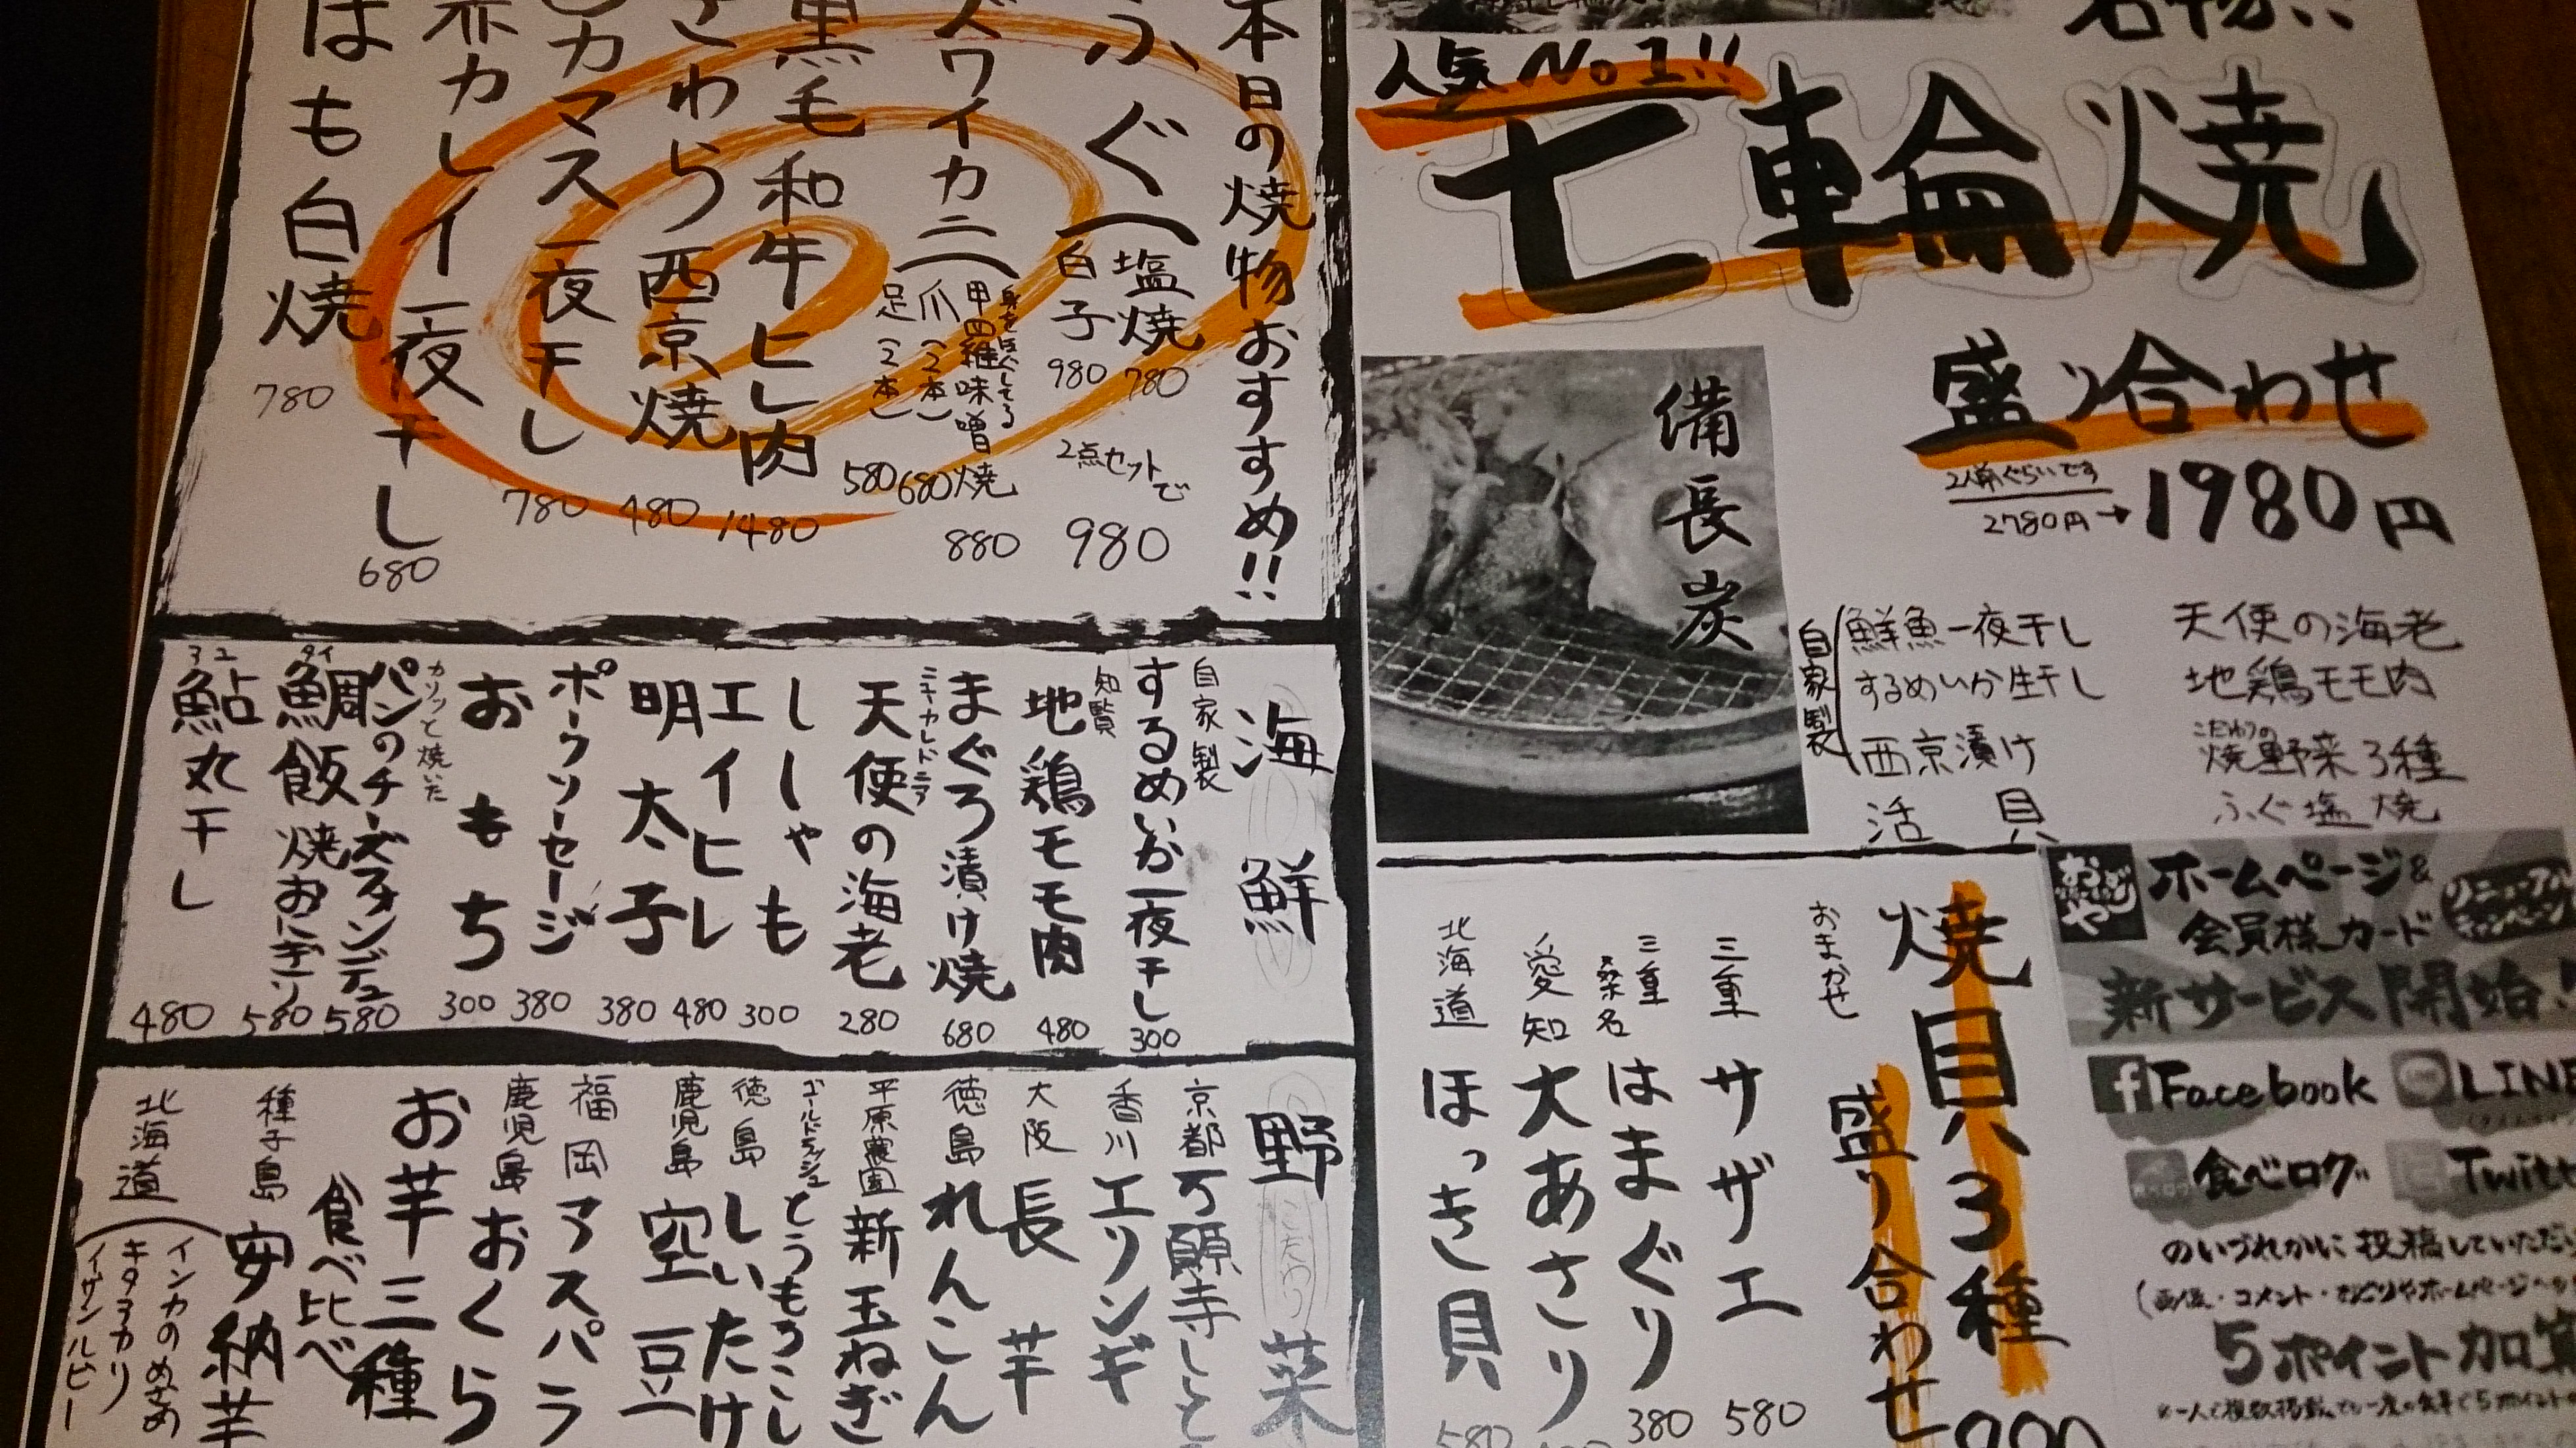 本日の焼物おすすめ!!
ふぐ
塩焼 780
白子 980
2点セットで
980
ズワイカニ
身をほぐしてる
甲羅味噌焼 880
爪(2本) 680
足(2本) 580
黒毛和牛ヒレ肉 1480
さわら西京焼 480
カマス一夜干し 780
赤カレイ一夜干し 680
はも白焼 780
名物!!
人気No1!!
七輪焼
盛り合わせ
2人前ぐらいです
2780円→1980円
備長炭
天使の海老
地鶏モモ肉
こだわりの
焼野菜3種
ふぐ塩焼
自家製
鮮魚一夜干し
するめいか生干し
西京漬け
活貝
海鮮
自家製
するめいか一夜干し 300
知覧
地鶏モモ肉 480
まぐろ漬け焼 680
ニューカレドニア
天使の海老 280
ししゃも 300
エイヒレ 480
明太子 380
ポークソーセージ 380
おもち 300
カリッと焼いた
パンのチーズフォンデュ 580
タイ
鯛飯焼おにぎり 580
鮎丸干し 480
野菜
京都 万願寺しし
香川 エリンギ
大阪 長芋
徳島 れんこん
平原農園 新玉ねぎ
ゴールドラッシュ
とうもろこし
徳島 しいたけ
鹿児島 空豆
福岡 アスパラ
鹿児島 おくら
お芋三種
食べ比べ
種子島 安納芋
北海道
インカのめざめ
キタアカリ
焼貝3種
盛り合わせ
おまかせ
三重 サザエ 580
三重
桑名
はまぐり 380
愛知 大あさり
北海道 ほっき貝 580
ホームページ&
会員様カード
新サービス開始
Facebook
LINE
食べログ
のいづれかに投稿していただ
5ポイント加算